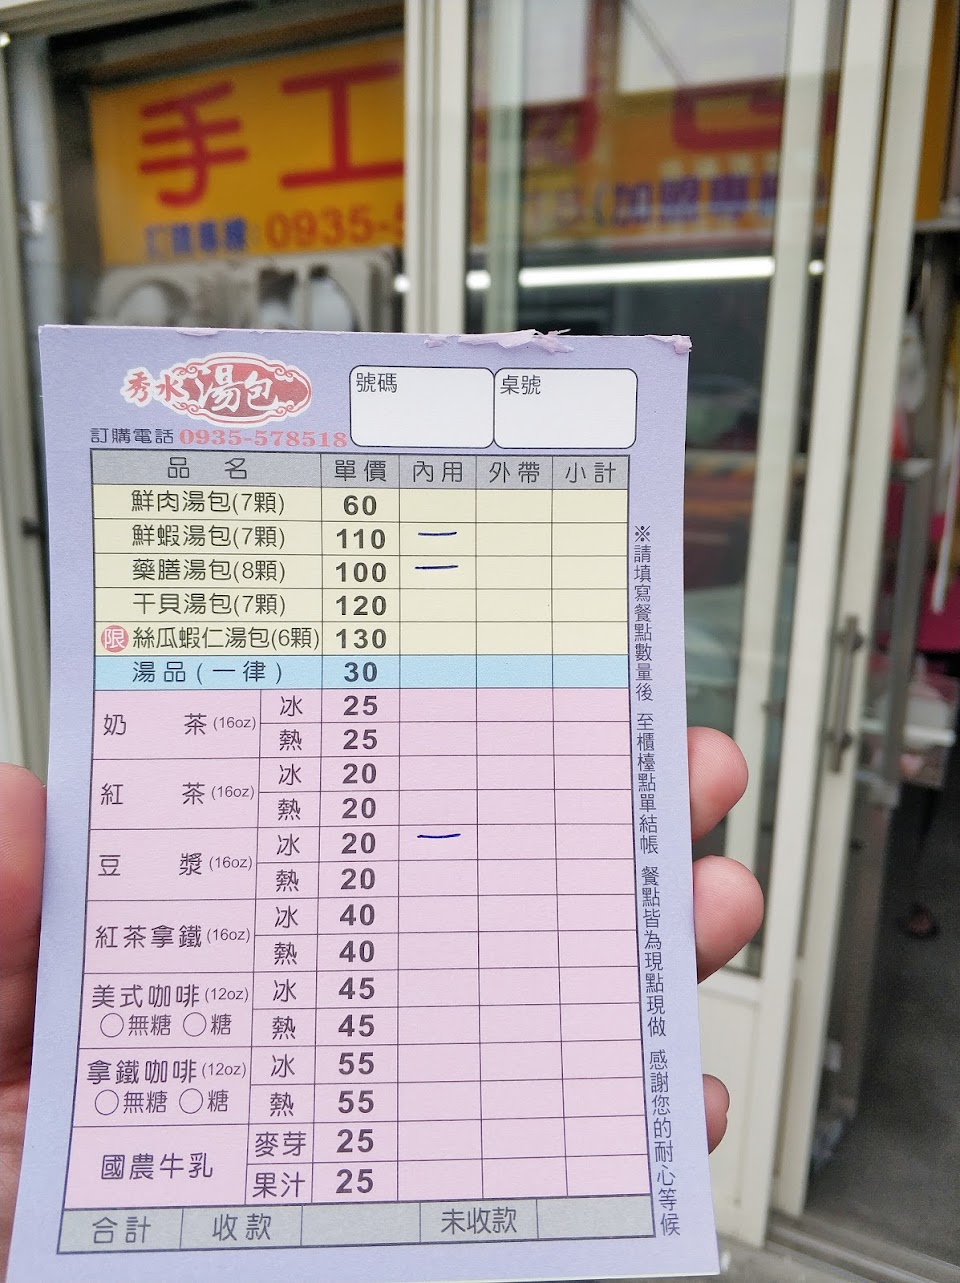 手工
訂購專線:0935-5
(加盟專
秀水湯包
訂購電話 0935-578518
號碼
桌號
品名 單價 內用 外帶 小計
鮮肉湯包(7顆) 60
鮮蝦湯包(7顆) 110 一
藥膳湯包(8顆) 100 一
干貝湯包(7顆) 120
限 絲瓜蝦仁湯包(6顆) 130
湯品(一律) 30
奶茶(16oz) 冰 25
熱 25
紅茶(16oz) 冰 20
熱 20
豆漿(16oz) 冰 20 一
熱 20
紅茶拿鐵(16oz) 冰 40
熱 40
美式咖啡(12oz) 冰 45
○無糖 ○糖 熱 45
拿鐵咖啡(12oz) 冰 55
○無糖 ○糖 熱 55
國農牛乳 麥芽 25
果汁 25
合計 收款 未收款
※請填寫餐點數量後 至櫃檯點單結帳 餐點皆為現點現做 感謝您的耐心等候